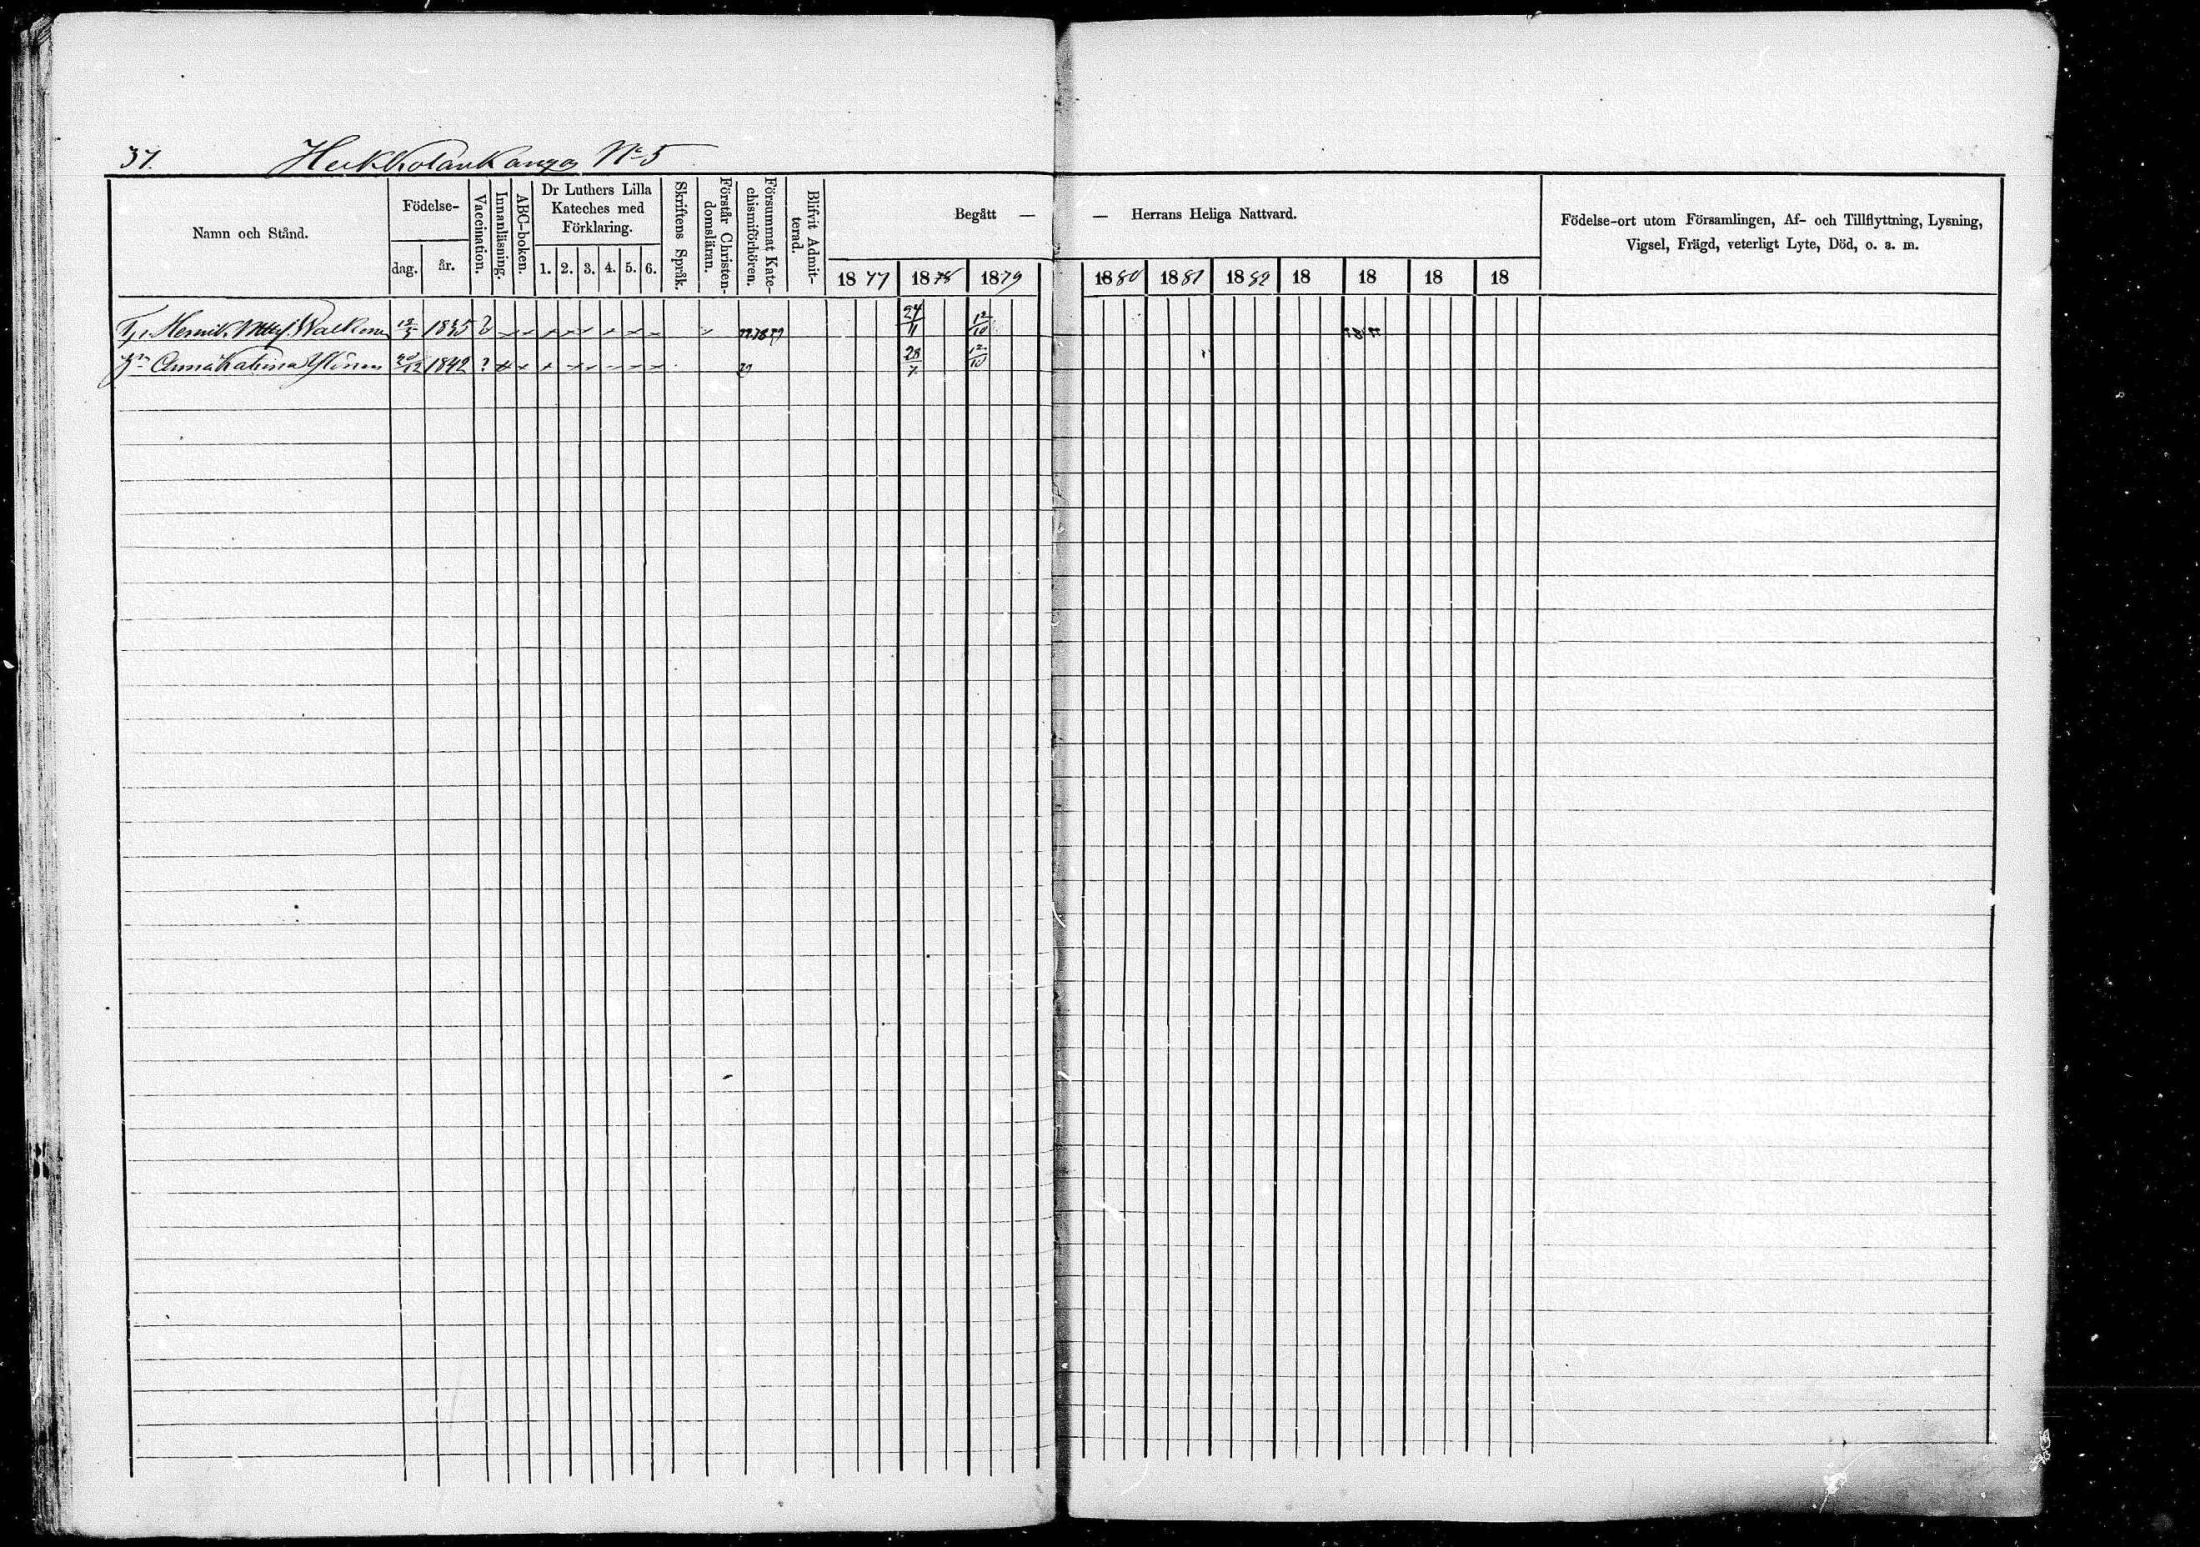 37. No 5
Namn och Stånd.
Födelse-
dag.
år.
Vaccination.
Innanläsning.
ABC-boken.
Dr Luthers Lilla
Kateches med
Förklaring.
1. 2. 3. 4. 5. 6.
Skriftens Språk.
Förstår Christen-
domsläran.
Försummat Kate-
chismiförhören.
Blifvit Admit-
terad.
Begått — — Herrans Heliga Nattvard.
1877 1878 1879 1880 1881 1882 18 18 18 18
Födelse-ort utom Församlingen, Af- och Tillflyttning, Lysning,
Vigsel, Frägd, veterligt Lyte, Död, o. s. m.
12/5 1835 24/11 12/10
Anna Katrina 1842 ? 28/7 12/10